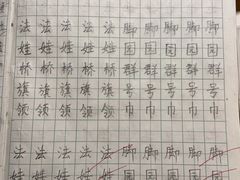 法法法法脚脚脚脚
娃娃娃娃园园园园
桥桥桥桥群群群群
旗旗旗旗号号号号
领领领领巾巾巾巾
法法法法脚脚脚脚
娃娃娃娃园园园园